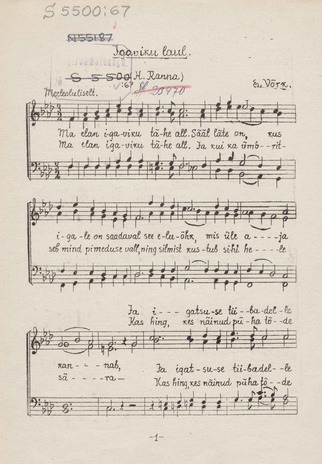 S 5500:67
N55187
Igaviku laul.
S 5500 (H. Ranna.)
:67
20770
Meeleolutiselt.
Ed. Võrk.
Ma elan i-ga-viku tä-he all. Sääl läte on, kus
Ma elan i-ga-viku tä-he all. Ja kui ka ümb-rit-
i-ga-le on saadaval see e-lu-õhk, mis üle a----ja
seb mind pimeduse vall, ning silmist kus-tub siht he----le
Ja i---gatsu-se tii-badel-le
Kas hing, kes näinud pü-ha tõ-de
kan---nab, Ja igat-su-se tii-badel-le
sä---ra— Kas hing, kes näinud püha tõ-de
-1-